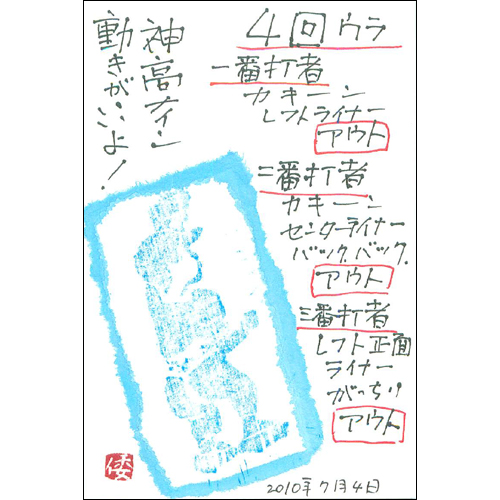 4回ウラ
一番打者
カキーン
レフトライナー
アウト
二番打者
カキーン
センターライナー
バック、バック、
アウト
三番打者
レフト正面
ライナー
がっちり
アウト
神高ナイン
動きがいいよ!
倭
2010年7月4日